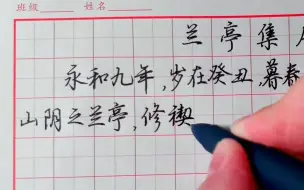 班级 姓名
兰亭集
永和九年，岁在癸丑，暮春
山阴之兰亭，修禊